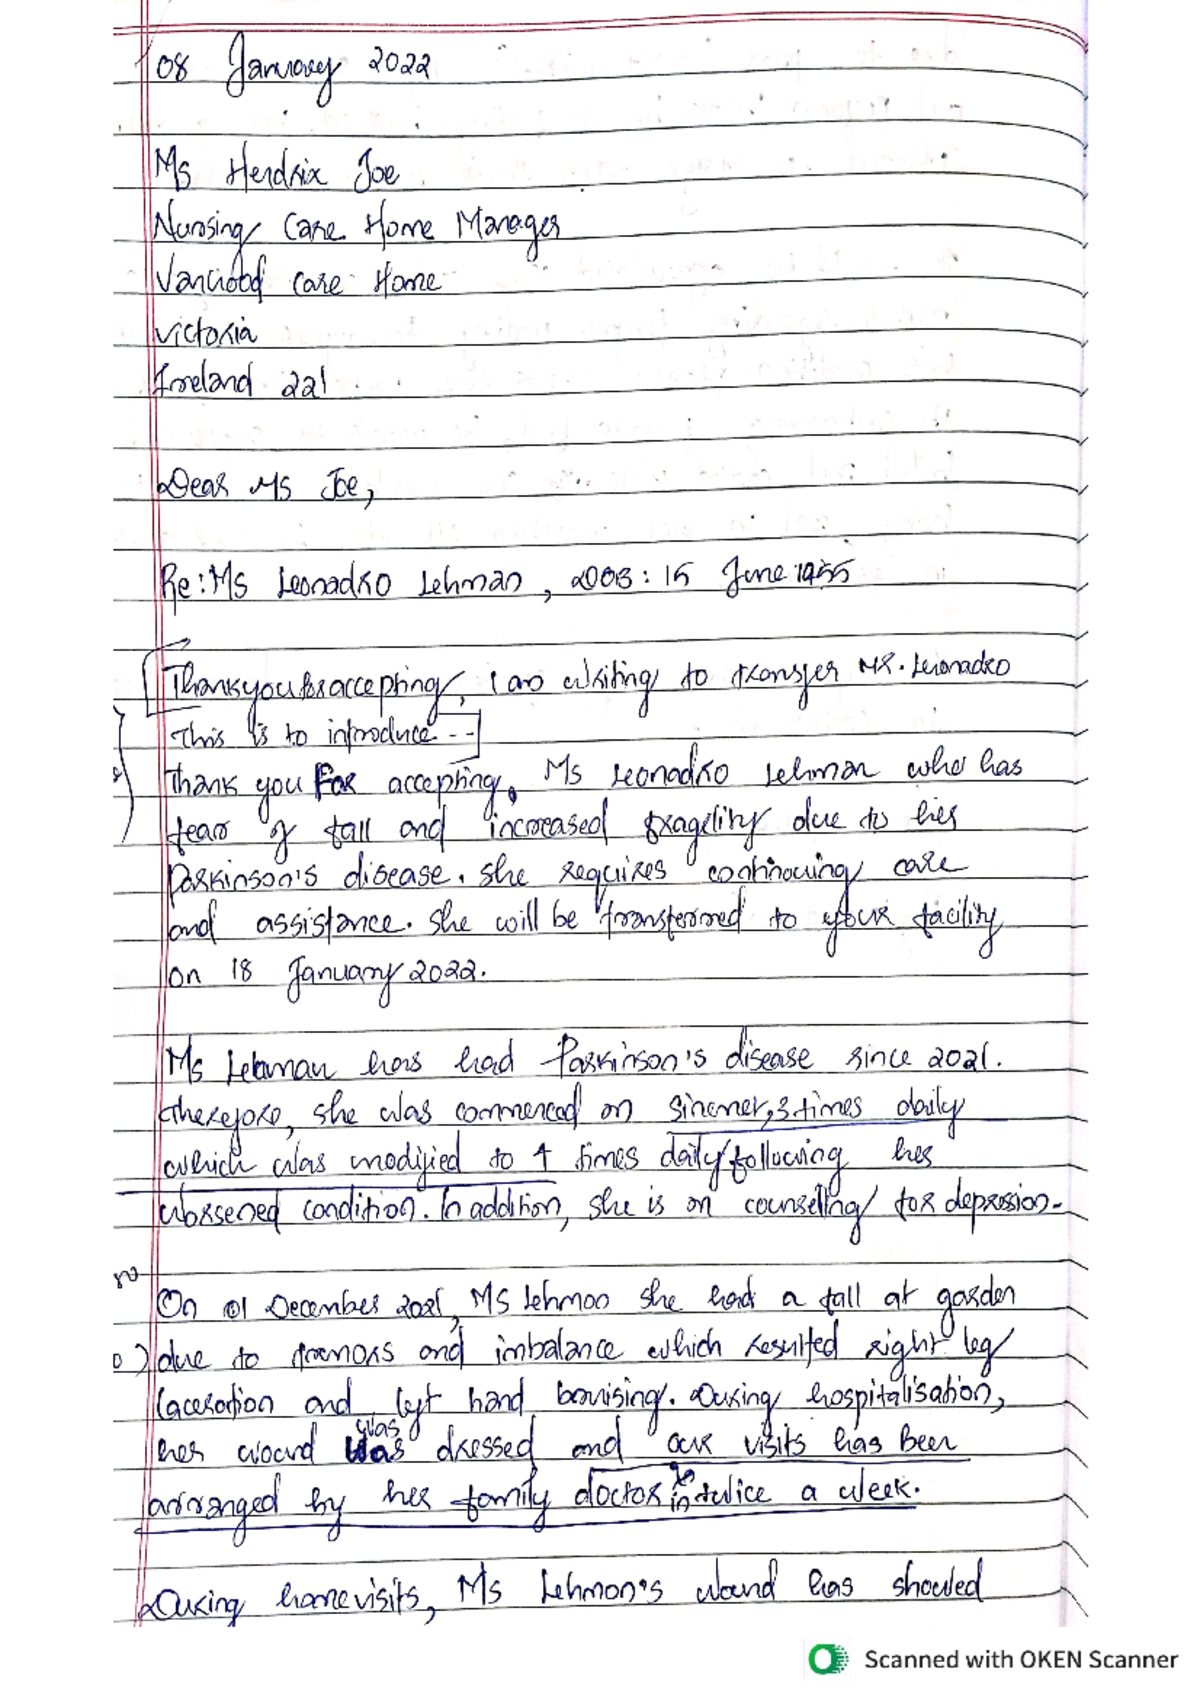 08 January 2022
Ms Hendrix Joe
Nursing Care Home Manager
Care Home
Victoria
Ireland 221
Dear Ms Joe,
Re: Ms Leonadro Lehman, : 15 June 1955
Thank you for accepting, I am writing to transfer Mr. Leonadro
This is to introduce --
Thank you For accepting, Ms Leonadro Lehman who has
fear of fall and increased fragelity due to her
Parkinson's disease. She requires continouing care
and assistance. She will be transferred to your facility
on 18 January 2022.
Ms Lehman has had Parkinson's disease since 2021.
Therefore, she was commenced on sinemer, 3 times daily
which was modified to 4 times daily following her
worsened condition. In addition, she is on counselling for depression.
On 01 December 2021, Ms Lehman she had a fall at garden
due to tremors and imbalance which resulted right leg
laceration and left hand bruising. During hospitalisation,
was
her wound was dressed and our visits has been
arranged by her family doctor in twice a week.
During home visits, Ms Lehman's wound has showed
Scanned with OKEN Scanner